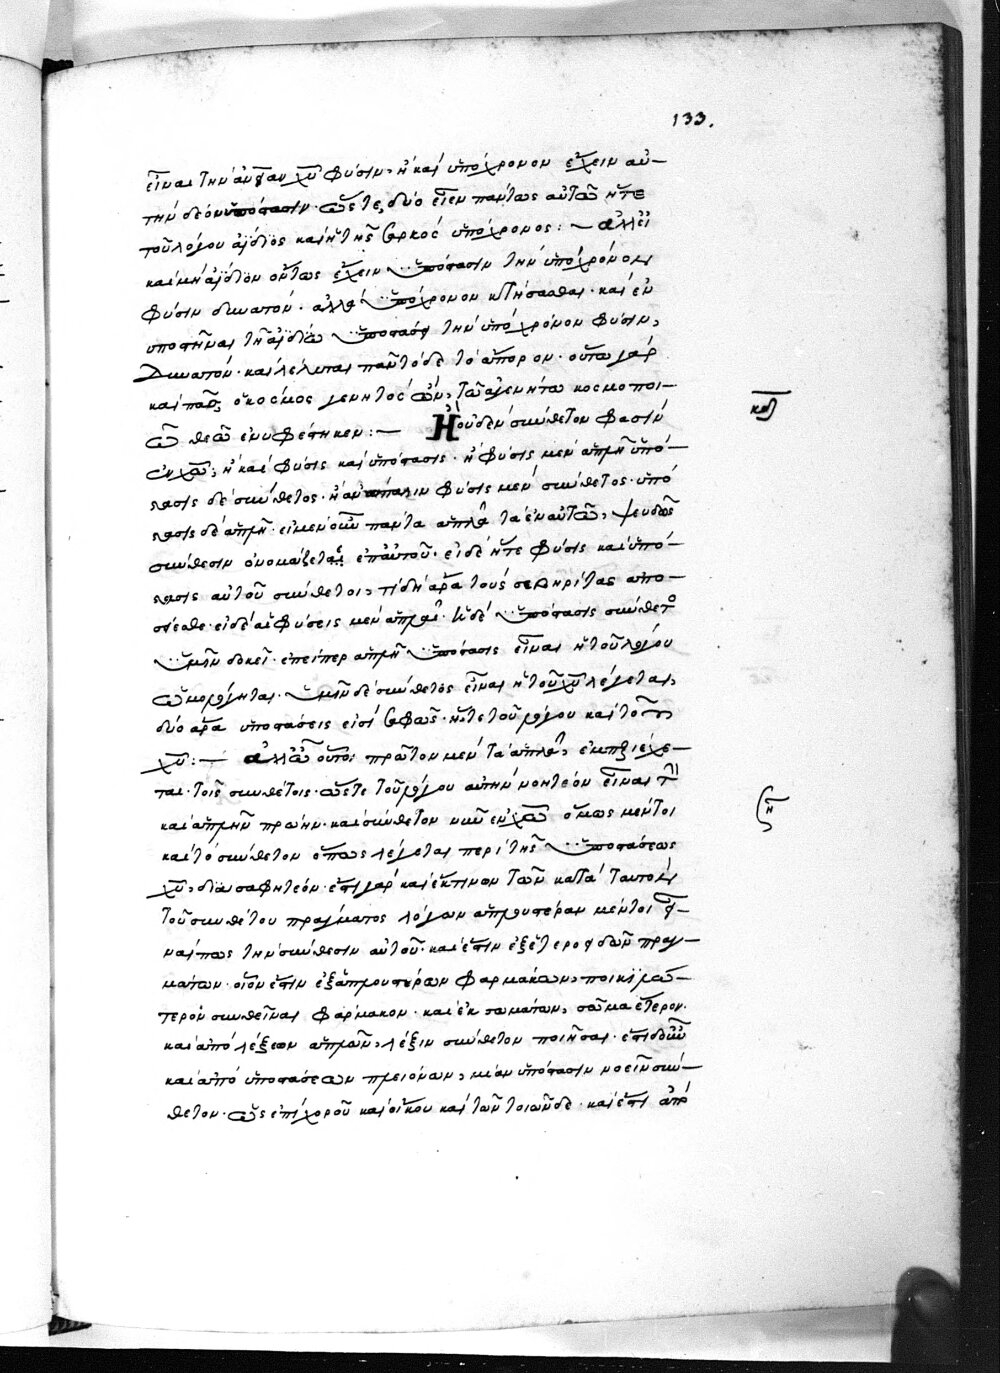 133.
εἶναι τὴν ἀν̅ι̅αν χ̅υ̅ φύσιν, ἢ καὶ ὑπόχρονον ἔχειν αὐ-
τὴν δέον ὑπόστασιν. ὥστε, δύο εἶεν πάντως αὐτῶ ἥτε
τοῦ λόγου ἀΐδιος καὶ ἡ τῆς σαρκὸς ὑπόχρονος :– ἀλλ' εἰ
καὶ μὴ ἀΐδιον ὄντως ἔχειν ὑπόστασιν τὴν ὑπόχρονον
φύσιν δυνατόν. ἀλλ' ὑπόχρονον κτήσασθαι. καὶ ἐν
ὑποστῆναι τῆ ἀϊδίω ὑποστάσει τὴν ὑπόχρονον φύσιν,
δυνατόν. καὶ λέλυται παντὶ τόδε τὸ ἄπορον. οὕτω γὰρ
καὶ πᾶς ὁ κόσμος γενητὸς ὤν, τῶ ἀγενήτω κοσμοποι-
ῶ θεῶ ἐνυφέστηκεν :– Ἢ οὐδὲν σύνθετον φασὶν
ἐν χ̅ω̅, ἢ καὶ φύσις καὶ ὑπόστασις. ἢ φύσις μὲν ἁπλῆ ὑπό-
στασις δὲ σύνθετος. ἢ ἀνάπαλιν φύσις μὲν σύνθετος. ὑπό
στασις δὲ ἁπλῆ. εἰ μὲν οὖν πάντα ἁπλᾶ τὰ ἐν αὐτῶ, ψευδῶς
σύνθεσιν ὀνομάζεται ἐπ' αὐτοῦ. εἰ δὲ ἥτε φύσις καὶ ὑπό-
στασις αὐτοῦ σύνθετοι, τί δὴ ἄρα τοὺς σευηρίτας ἀπο-
στέεσθε. εἰ δὲ αἱ φύσεις μὲν ἁπλαῖ. ἡ δὲ ὑπόστασις σύνθετο
ὑμῖν δοκεῖ. ἐπείπερ ἁπλῆ ὑπόστασις εἶναι ἡ τοῦ λόγου
ὡμολόγηται. ὑμῖν δὲ σύνθετος εἶναι ἡ τοῦ χ̅υ̅ λέγεται,
δύο ἄρα ὑποστάσεις εἰσὶ σαφῶς. ἥτε τοῦ λόγου καὶ τοῦ
χ̅υ̅ :– ἀλλ' ὦ οὗτοι πρῶτον μὲν τὰ ἁπλᾶ, ἐμπεριέχε-
ται τοῖς συνθέτοις. ὥστε τοῦ λόγου αὐτὴν νοητέον εἶναι
καὶ ἁπλῆν πρώην. καὶ σύνθετον νῦν ἐν χ̅ω̅ ὅμως μέντοι
καὶ τὸ σύνθετον ὅπως λέγεται περὶ τῆς ὑποστάσεως
χ̅υ̅, διασαφητέον. ἔστι γὰρ καὶ ἐκ τινων τῶν κατὰ ταυτὸν
τοῦ συνθέτου πράγματος λόγων ἁπλουστέραν μέντοι
ναί πως τὴν σύνθεσιν αὐτοῦ. καὶ ἔστιν ἐξ ἑτεροειδῶν πραγ-
μάτων. οἷόν ἐστιν ἐξ ἁπλουστέρων φαρμάκων, ποικιλώ-
τερον συνθεῖναι φάρμακον. καὶ ἐκ σωμάτων, σῶμα ἕτερον.
καὶ ἀπὸ λέξεων ἁπλῶν, λέξιν σύνθετον ποιῆσαι. ἔστι δ' οὖν
καὶ ἀπὸ ὑποστάσεων πλειόνων, μίαν ὑπόστασιν νοεῖν σύν-
θετον. ὡς ἐπὶ χοροῦ καὶ οἴκου καὶ τῶν τοιῶνδε. καὶ ἔστι ἀπὸ